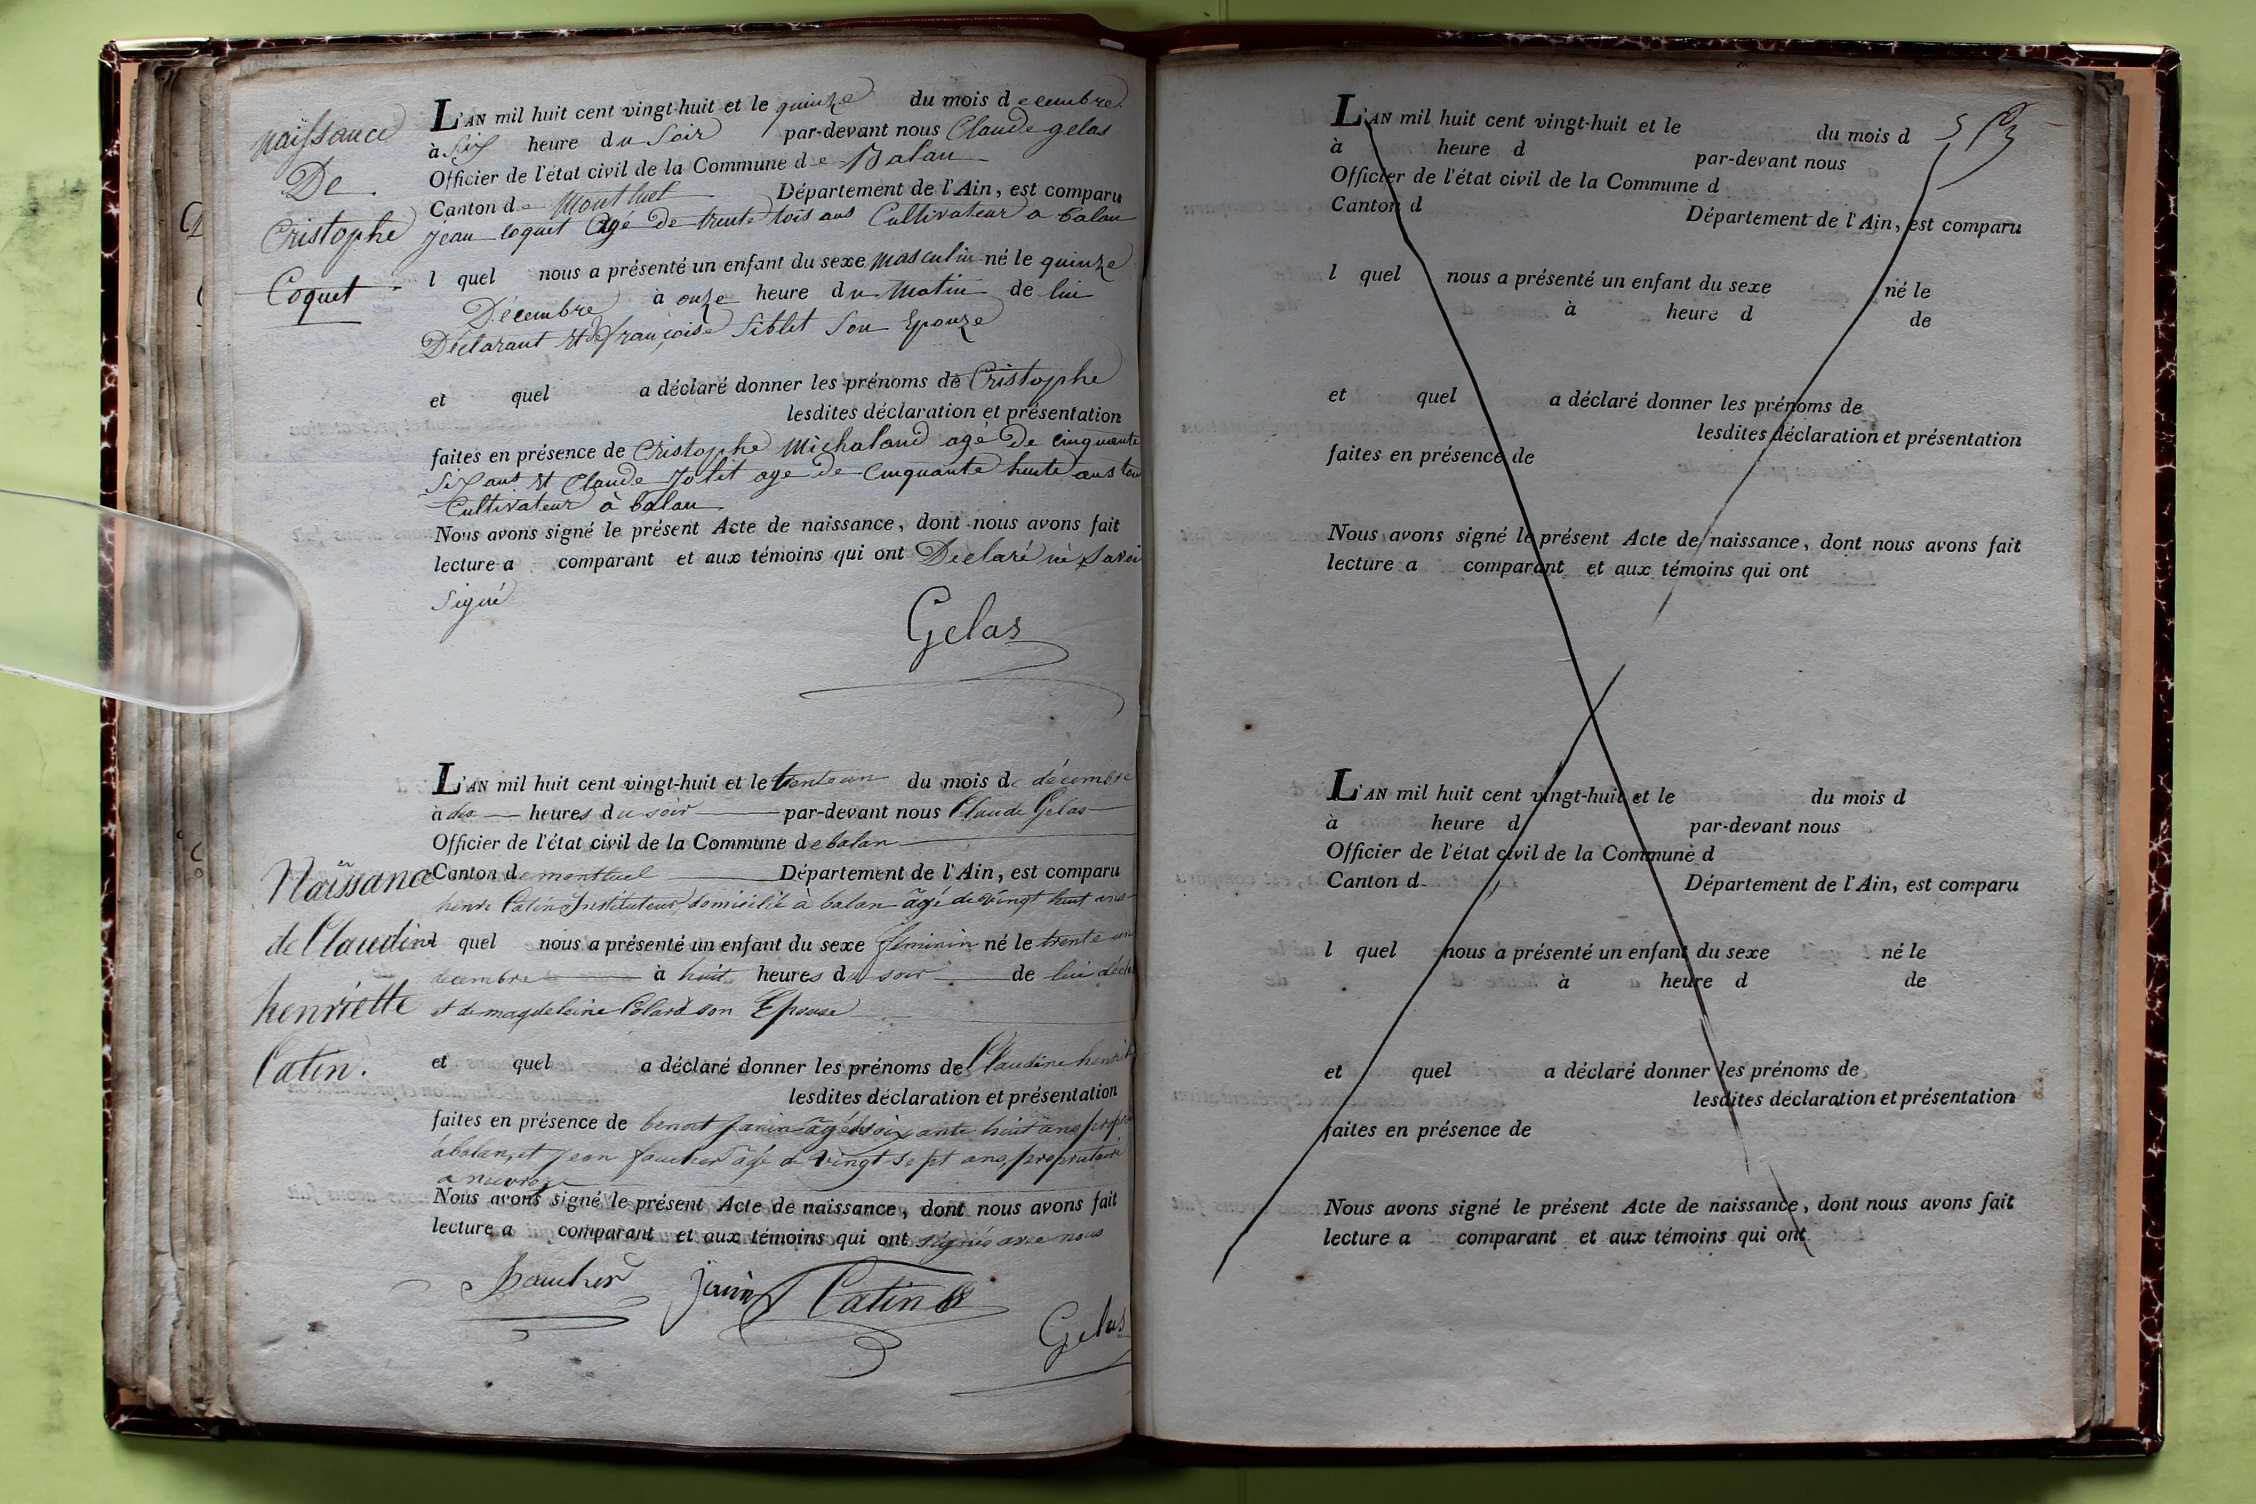 naissance
De
Cristophe
Coquet
L'AN mil huit cent vingt-huit et le quinze du mois decembre
à Six heure du Soir par-devant nous Claude gelas
Officier de l'état civil de la Commune de Balan
Canton de Montluel Département de l'Ain, est comparu
Jean Coquet Agé De trente tois ans Cultivateur a balan
l quel nous a présenté un enfant du sexe masculin né le quinze
Décembre à onze heure du Matin de lui
Déclarant et de françoise Siblet Son Epouze
et quel a déclaré donner les prénoms de Cristophe
lesdites déclaration et présentation
faites en présence de Cristophe Michaland agé De cinquante
Six ans et Claude Jolit age de Cinquante huite ans tou
Cultivateur à balan
Nous avons signé le présent Acte de naissance, dont nous avons fait
lecture a comparant et aux témoins qui ont Declaré ne Savoi
Signé
Gelas
Naissance
de Claudine
henriette
Catin.
L'AN mil huit cent vingt-huit et le trente un du mois de décembre
à dix heures du soir par-devant nous Claude Gelas
Officier de l'état civil de la Commune de balan
Canton de montluel Département de l'Ain, est comparu
henri Catin Instituteur, domicilié a balan âgé de vingt huit ans
l quel nous a présenté un enfant du sexe féminin né le trente un
decembre à huit heures du soir de lui décla
et de magdeleine Colard son Epouse
et quel a déclaré donner les prénoms de Claudine henriette
lesdites déclaration et présentation
faites en présence de benoit Janin âgé de soixante huit ans propri
à balan, et Jean âgé de vingt sept ans, proprietaire
a
Nous avons signé le présent Acte de naissance, dont nous avons fait
lecture a comparant et aux témoins qui ont signés avec nous
Janin Catin
Gelas
L'AN mil huit cent vingt-huit et le du mois d
à heure d par-devant nous
Officier de l'état civil de la Commune d
Canton d Département de l'Ain, est comparu
l quel nous a présenté un enfant du sexe né le
à heure d de
et quel a déclaré donner les prénoms de
lesdites déclaration et présentation
faites en présence de
Nous avons signé le présent Acte de naissance, dont nous avons fait
lecture a comparant et aux témoins qui ont
L'AN mil huit cent vingt-huit et le du mois d
à heure d par-devant nous
Officier de l'état civil de la Commune d
Canton d Département de l'Ain, est comparu
l quel nous a présenté un enfant du sexe né le
à heure d de
et quel a déclaré donner les prénoms de
lesdites déclaration et présentation
faites en présence de
Nous avons signé le présent Acte de naissance, dont nous avons fait
lecture a comparant et aux témoins qui ont